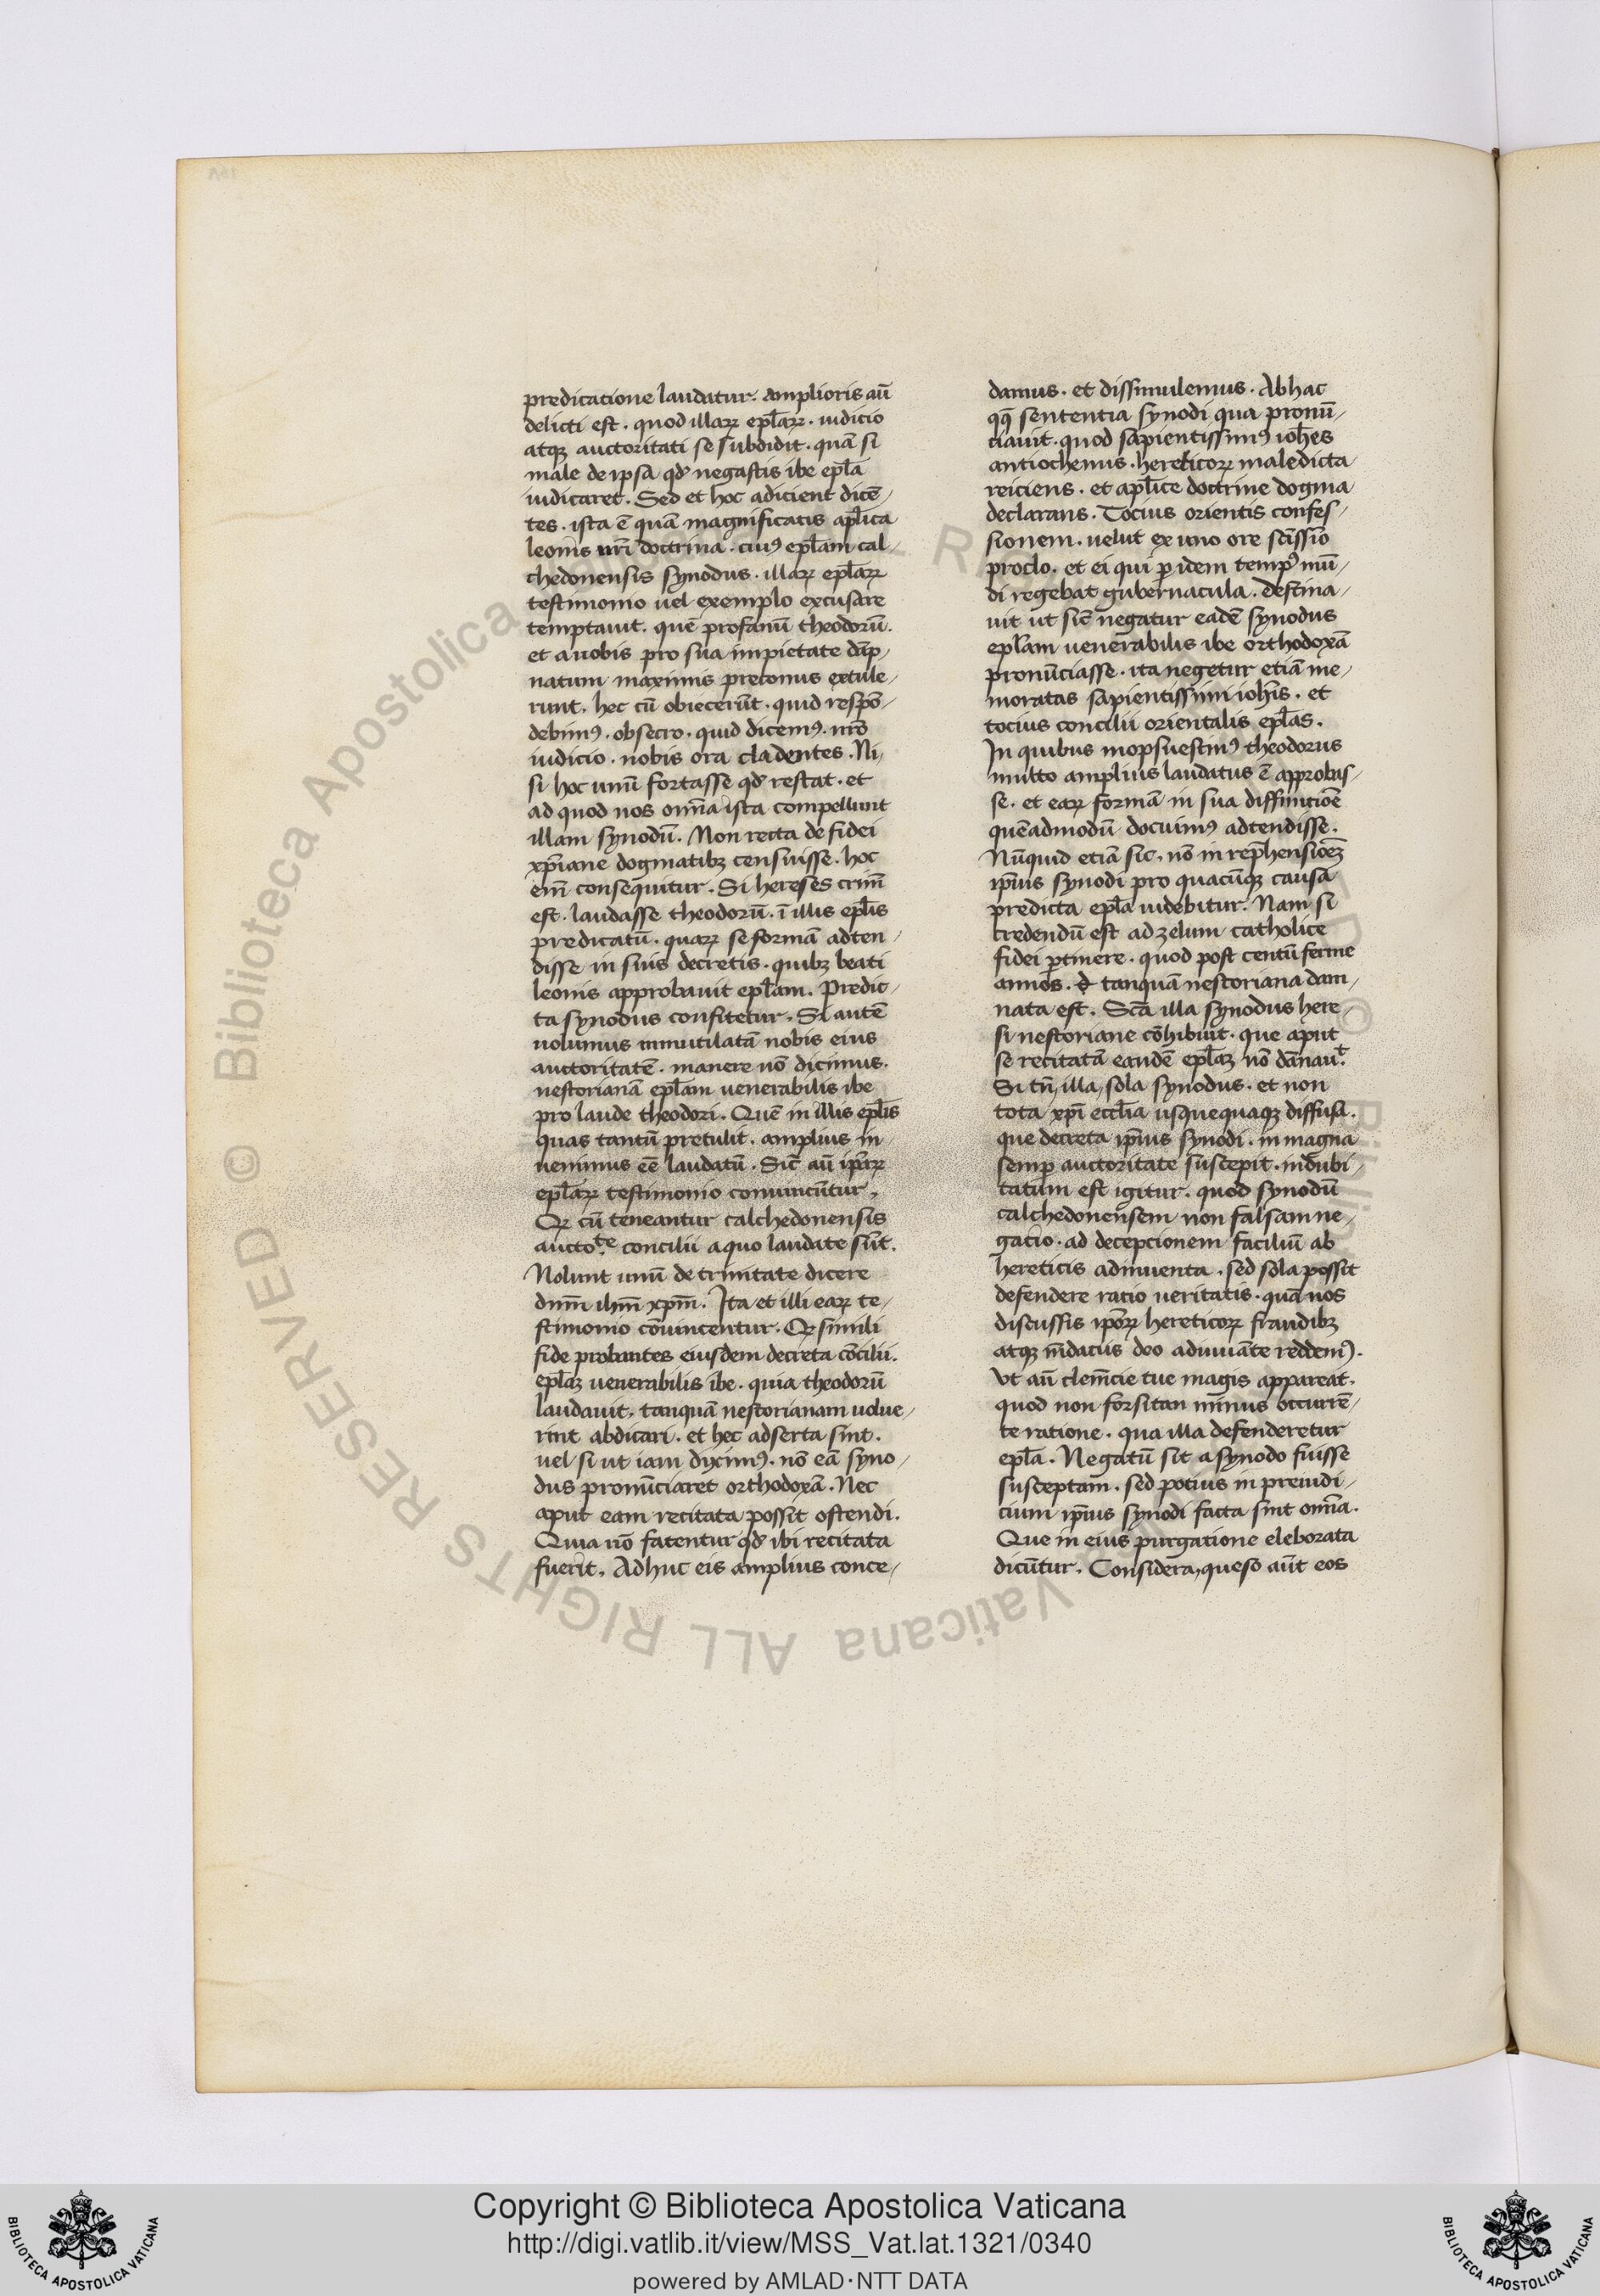 predicatione laudatur. amplioris aū
delicti est. quod illaꝝ epl̄aꝝ. iudicio
atqꝫ auctoritati se subdidit. quā si
male de ipsa qđ negastis ibe epl̄a
iudicaret. Sed et hoc adicient dicē/
tes. ista ē quā magnificatis apl̄ica
leonis nr̄i doctrina. cuiꝰ epl̄am cal/
chedonensis synodus. illaꝝ epl̄aꝝ
testimonio uel exemplo excusare
temptauit. quē profanū theodorū.
et a uobis pro sua impietate dāp/
natum maximis preconus extule/
runt. hec cū obiecerūt. quid respō/
debimꝰ. obsecro. quid dicemꝰ. nr̄o
iudicio. nobis ora cladentes. Ni/
si hoc unū fortasse qđ restat. et
ad quod nos om̄ia ista compellunt
illam synodū. Non recta de fidei
xp̄iane dogmatibꝫ censuisse. hoc
em̄ consequitur. Si hereses crim̄
est. laudasse theodorū. ī illis epl̄is
predicatū. quaꝝ se formā adten/
disse in suis decretis. quibꝫ beati
leonis approbauit epl̄am. Predic/
ta synodus confitetur. Si autē
uolumus inmutilatā nobis eius
auctoritatē. manere nō dicimus.
nestorianā epl̄am uenerabilis ibe
pro laude theodori. Quē in illis epl̄is
quas tantū pretulit. amplius in/
uenimus eē laudatū. Sic̄ aū ip̄aꝝ
epl̄aꝝ testimonio conuincūtur.
Qꝫ cū teneantur calchedonensis
aucto.te concilii a quo laudate sūt.
Nolunt unū de trinitate dicere
dnm̄ ihm̄ xpm̄. Ita et illi eaꝝ te/
stimonio cōuincentur. Qꝫ simili
fide probantes eiusdem decreta cōcilii.
epl̄aꝫ uenerabilis ibe. quia theodorū
laudauit. tanquā nestorianam uolue/
rint abdicari. et hec adserta sint.
uel si ut iam diximꝰ. nō eā syno/
dus pronūciaret orthodoxā. Nec
aput eam recitata possit ostendi.
Quia nō fatentur qđ ibi recitata
fuerit. Adhuc eis amplius conce/
damus. et dissimulemus. Ab hac
qq̄ sententia synodi qua pronū/
ciauit. quod sapientissimꝰ ioh̄es
antiochenus. hereticoꝝ maledicta
reiciens. et apl̄ice doctrine dogma
declarans. Tocius orientis confes/
sionem. uelut ex uno ore sc̄issīo
proclo. et ei qui ꝑ idem tempꝰ mū/
di regebat gubernacula. destina/
uit ut sic̄ negatur eadē synodus
epl̄am uenerabilis ibe orthodoxā
pronūciasse. ita negetur etiā me/
moratas sapientissimi ioh̄is. et
tocius concilii orientalis epl̄as.
In quibus mopsuestinꝰ theodorus
multo amplius laudatus ē approbas/
se. et eaꝝ formā in sua diffinitiōe
quēadmodū docuimꝰ adtendisse.
Nūquid etiā sic. nō in rep̄hensiōeꝫ
ip̄ius synodi pro quacūqꝫ causa
predicta epl̄a uidebitur. Nam si
credendū est ad zelum catholice
fidei ꝑtinere. quod post centū ferme
annos. tanquā nestoriana dam/
nata est. Sc̄a illa synodus here/
si nestoriane cōhibuit. que aput
se recitatā eandē epl̄aꝫ nō dānau.t
Si tn̄ illa sola synodus. et non
tota xp̄i eccl̄ia usquequaqꝫ diffusa.
que decreta ip̄ius synodi. in magna
semꝑ auctoritate suscepit. indubi/
tatum est igitur. quod synodū
calchedonensem non falsa ne/
gatio. ad decepcionem faciliū ab
hereticis adinuenta. sed sola possit
defendere ratio ueritatis. quā nos
discussis ip̄oꝝ hereticoꝝ fraudibꝫ
atqꝫ m̄daciis deo adiuuāte reddemꝰ.
Vt aū clem̄cie tue magis appareat.
quod non forsitan minus occurrē/
te ratione. qua illa defenderetur
epl̄a. Negatū sit a synodo fuisse
susceptam. sed pocius in preiudi/
cium ip̄ius synodi facta sint om̄ia.
Que in eius purgatione eleborata
dicūtur. Considera, queso aūt eos
© Biblioteca Apostolica Vaticana ALL RIGHTS RESERVED
Copyright © Biblioteca Apostolica Vaticana
http://digi.vatlib.it/view/MSS_Vat.lat.1321/0340
powered by AMLAD·NTT DATA
BIBLIOTECA APOSTOLICA VATICANA
BIBLIOTECA APOSTOLICA VATICANA